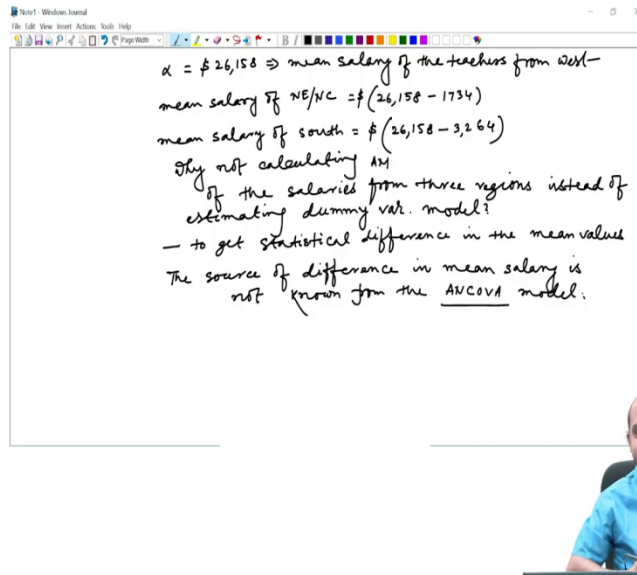 Note1 - Windows Journal
File Edit View Insert Actions Tools Help
Page Width
B I
α = $26,158 ⇒ mean salary of the teachers from west
mean salary of NE/NC = $(26,158 - 1734)
mean salary of south = $(26,158 - 3,264)
Why not calculating AM
of the salaries from three regions instead of
estimating dummy var. model?
— to get statistical difference in the mean values
The source of difference in mean salary is
not known from the ANCOVA model.